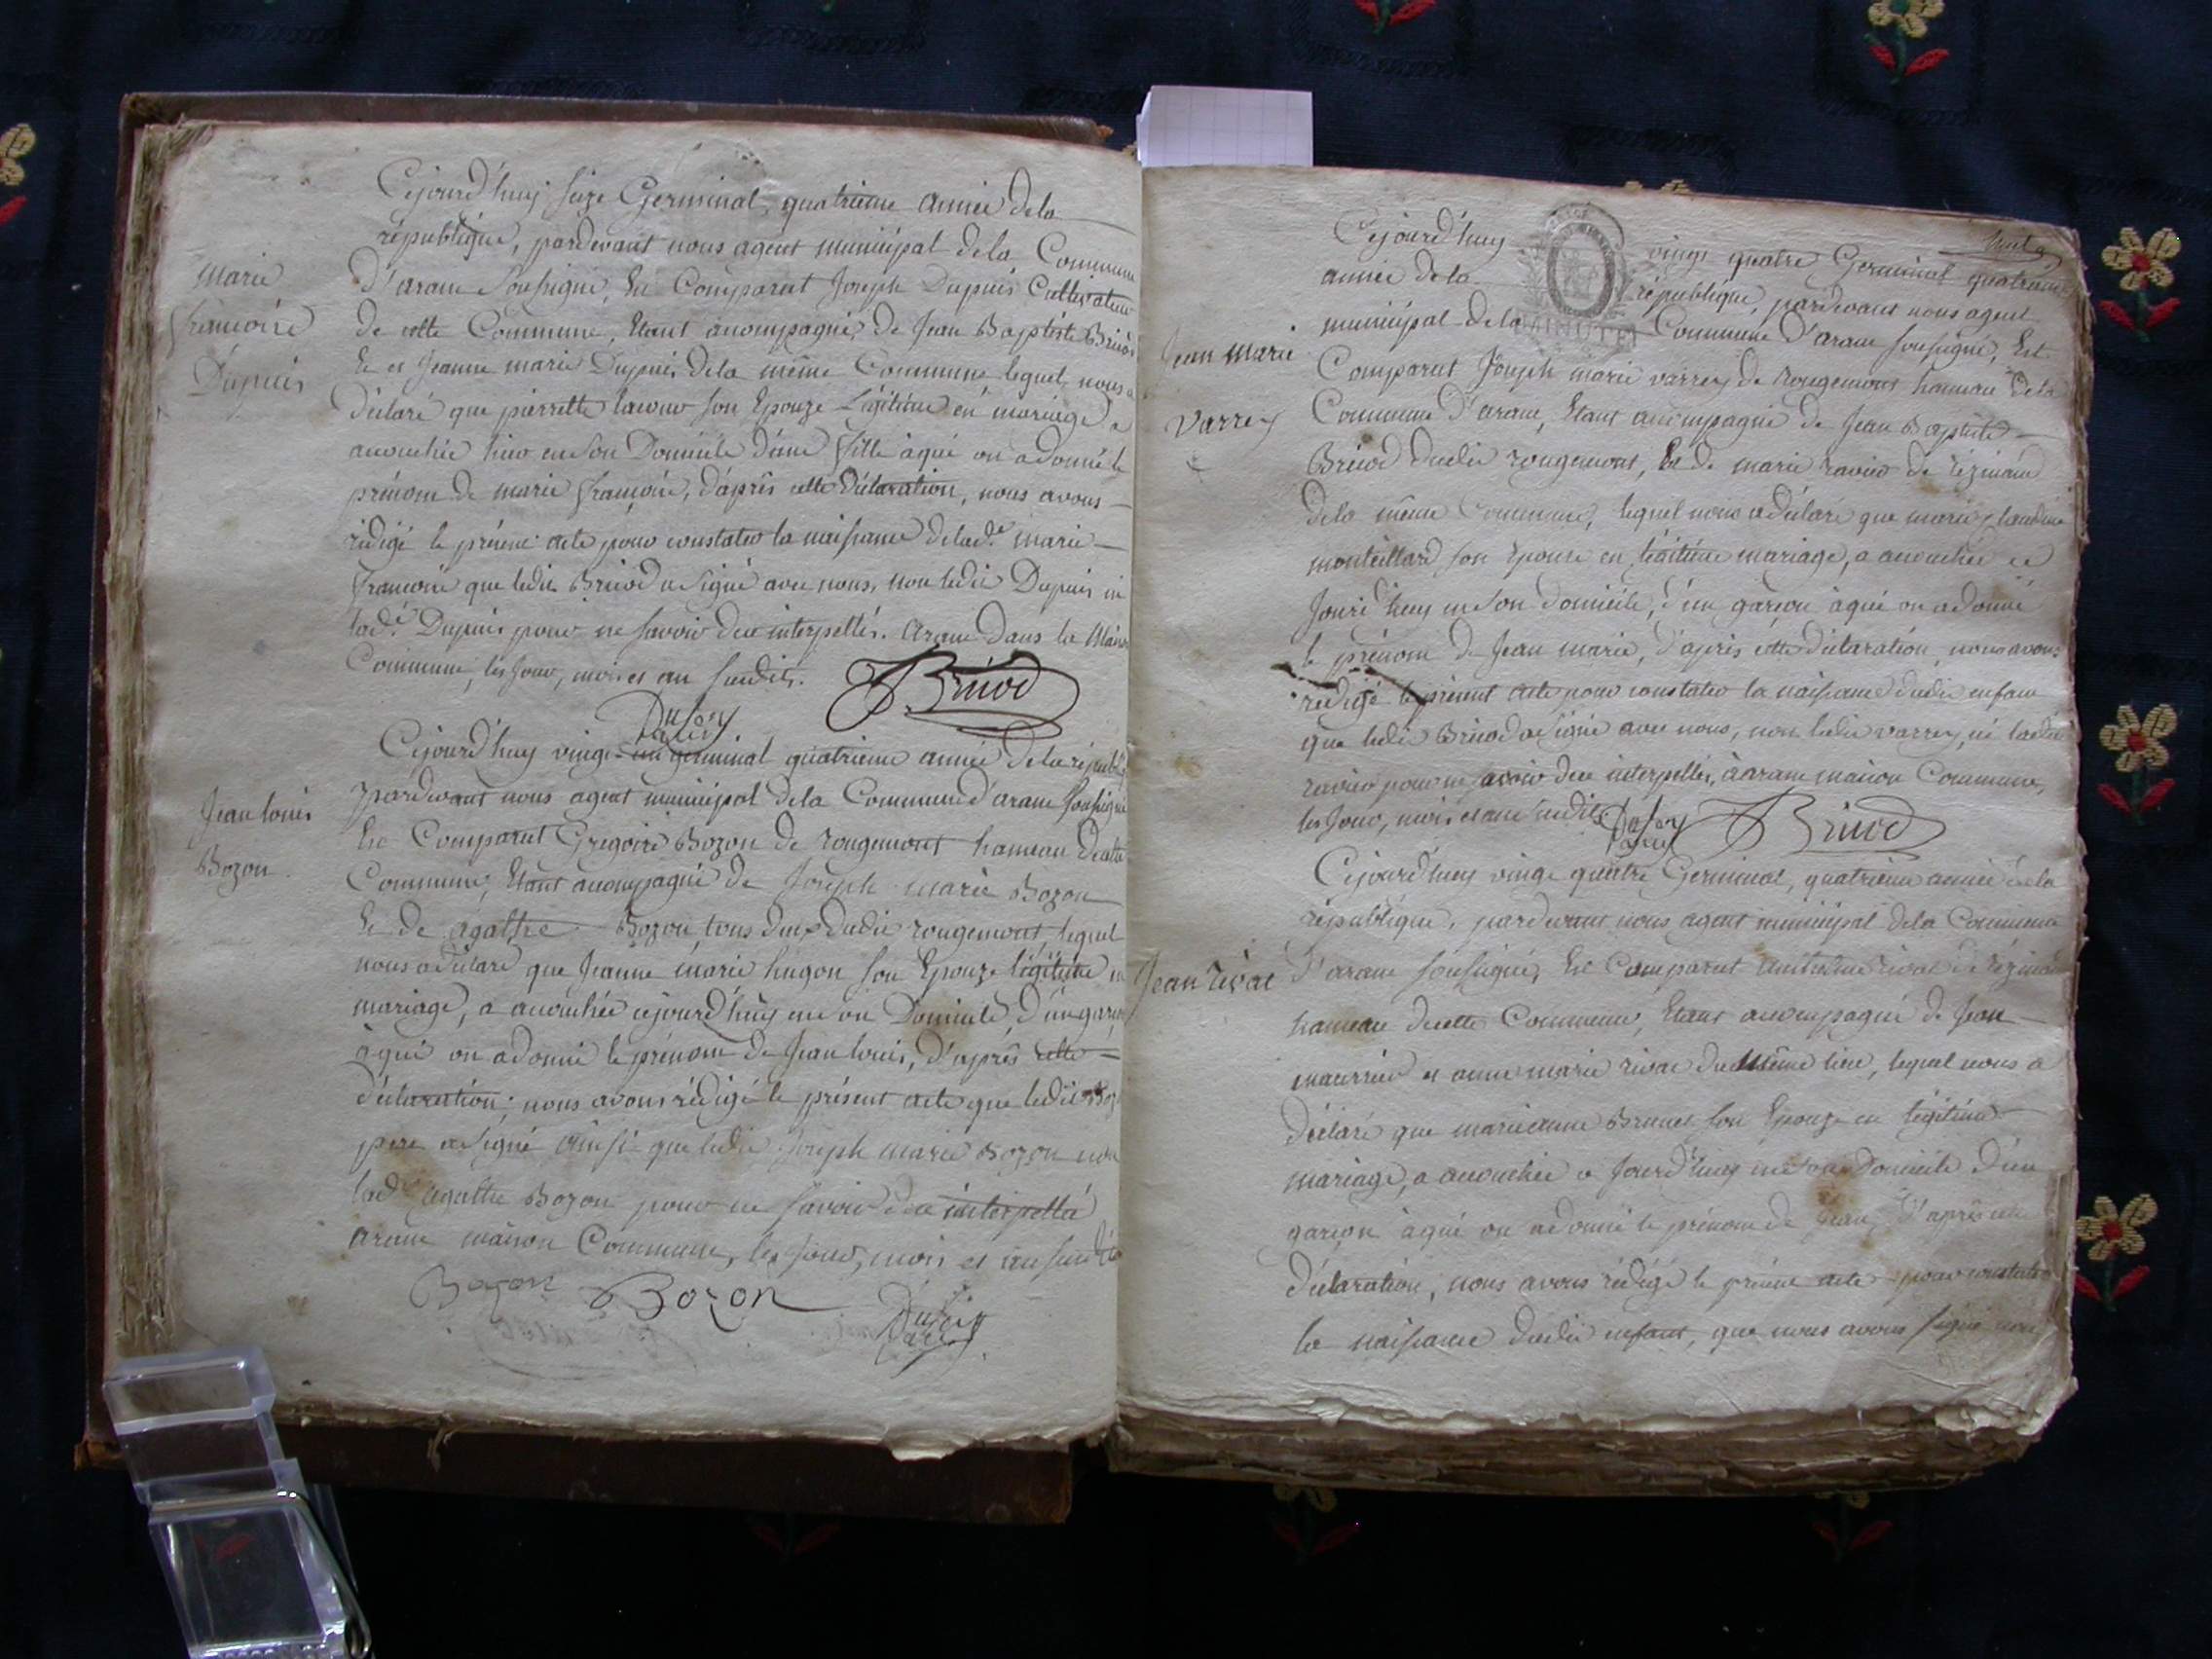 Cejourd'huy seize Germinal, quatrieme année dela
république, pardevant nous agent municipal dela Commune
D'arane soussigné, Est Comparut Joseph Dupuis Cultivateur
de cette Commune, Etant accompagné, de Jean Baptiste Briod
Et et Jeanne marie Dupuis dela même Commune lequel nous a
Déclaré que pierrette son Epouze Légitime en mariage a
accouchée hier en son Domicile d'une fille à qui on a donné le
prénom de marie françoise, d'après cette déclaration, nous avons
rédigé le présent acte pour constater la naissance delad.e marie
francoise que ledit Briod a signé avec nous, non ledit Dupuis ni
lad.e Dupuis pour ne savoir de ce interpellés. arane Dans la Maison
Commune, les jour, mois et an susdits.
Briod
marie
francoise
Dupuis
Cejourd'huy vingt-un germinal quatrieme année dela républ
pardevant nous agent municipal dela Commune d'arane soussigné
Est Comparut Gregoire Bozon de rougemont hameau decette
Commune, Etant accompagné de Joseph marie Bozon
Et de agathe Bozon tous deux dudit rougemont, lequel
nous a déclaré que Jeanne marie hugon son Epouze légitime en
mariage, a accouchée cejourd'huy en son Domicile, d'un garçon
à qui on a donné le prénom de Jean louis, d'après cette
déclaration; nous avons rédigé le présent acte que ledit Boz
pere a signé ainsi que ledit Joseph marie Bozon non
lad.e agathe Bozon pour ne savoir de ce interpellé
arane maison Commune, les jour, mois et an susdits
Bozon Bozon
Jean louis
Bozon
huit
Cejourd'huy vingt quatre Germinal quatrieme
année dela république, pardevant nous agent
municipal dela Commune d'arane soussigné, Est
MINUTE
Comparut Joseph marie varrey de rougemont hameau dela
Commune d'arane, Etant accompagné de Jean Baptiste
Briod dudit rougemont, Et de marie ravier de rézinand
dela même Commune, lequel nous a déclaré que marie claudine
monteillard son Epouse en légitime mariage, a accouchée ce
Jourd'huy en son domicile, d'un garçon à qui on a donné
le prénom de Jean marie, d'après cette déclaration, nous avons
redigé le présent acte pour constater la naissance dudit enfant
que ledit Briod a signé avec nous, non ledit varrey, ni ladite
ravier pour ne savoir de ce interpellés, à arane maison Commune,
les Jour, mois et an susdits
Briod
Jean marie
Varrey
Cejourd'huy vingt quatre Germinal, quatrieme année dela
république, pardevant nous agent municipal dela Commune
d'arane soussigné, Est Comparut rivat de rézinand
hameau decette Commune, Etant accompagné de Jean
maurrier et anne marie rivat du même lieu, lequel nous a
Déclaré que marieanne Brunet son Epouze en légitime
mariage, a accouchée a Jourd'huy en son Domicile d'un
garçon à qui on a donné le prénom de Jean, d'après cette
déclaration, nous avons rédigé le présent acte pour constater
la naissance dudit enfant, que nous avons signé non
Jean rivat